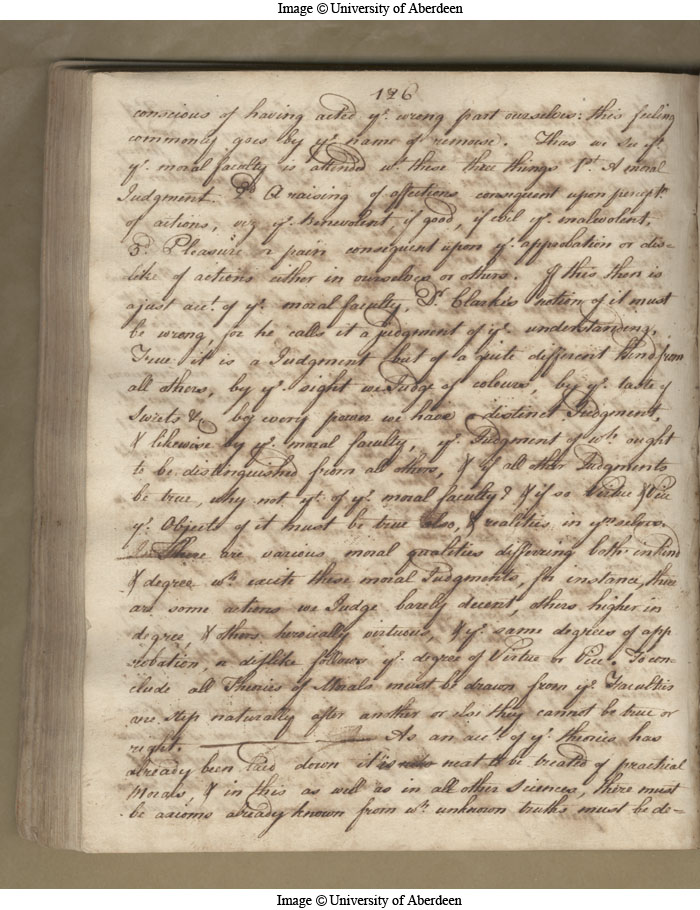 Image © University of Aberdeen
126
conscious of having acted ye. wrong part ourselves: this feeling
commonly goes by ye. name of remorse. Thus we see yt.
ye. moral faculty is attended wt. these three things 1st. A moral
Judgment. 2d. A raising of affections consequent upon percept.
of actions, viz ye. benevolent if good, if evil ye. malevolent,
3d. Pleasure or pain consequent upon ye. approbation or dis=
like of actions either in ourselves or others. If this then is
a just acct. of ye. moral faculty, Dr. Clarke's notion of it must
be wrong, for he calls it a judgment of ye. understanding,
True it is a Judgment but of a quite different kind from
all others, by ye. sight we Judge of colours, by ye. taste of
sweets &c by every power we have a distinct Judgment,
& likewise by ye. moral faculty, ye. Judgment of wch. ought
to be distinguished from all others, & if all other Judgments
be true, why not yt. of ye. moral faculty? & if so Virtue & Vice
ye. Objects of it must be true also, & realities in ymselves.
There are various moral qualities differing both in kind
& degree wch. excite these moral Judgments, for instance, there
are some actions we Judge barely decent, others higher in
degree, & others heroically virtuous, & ye. same degrees of app
robation, or dislike follows ye. degree of Virtue or Vice. To con=
clude all Theories of Morals must be drawn from ye. Faculties
one step naturally after another or else they cannot be true or
right. As an acct. of ye. theories has
already been laid down it is now next to be treated of practical
Morals, & in this as well as in all other Sciences, there must
be axioms already known from wch. unknown truths must be de=
Image © University of Aberdeen